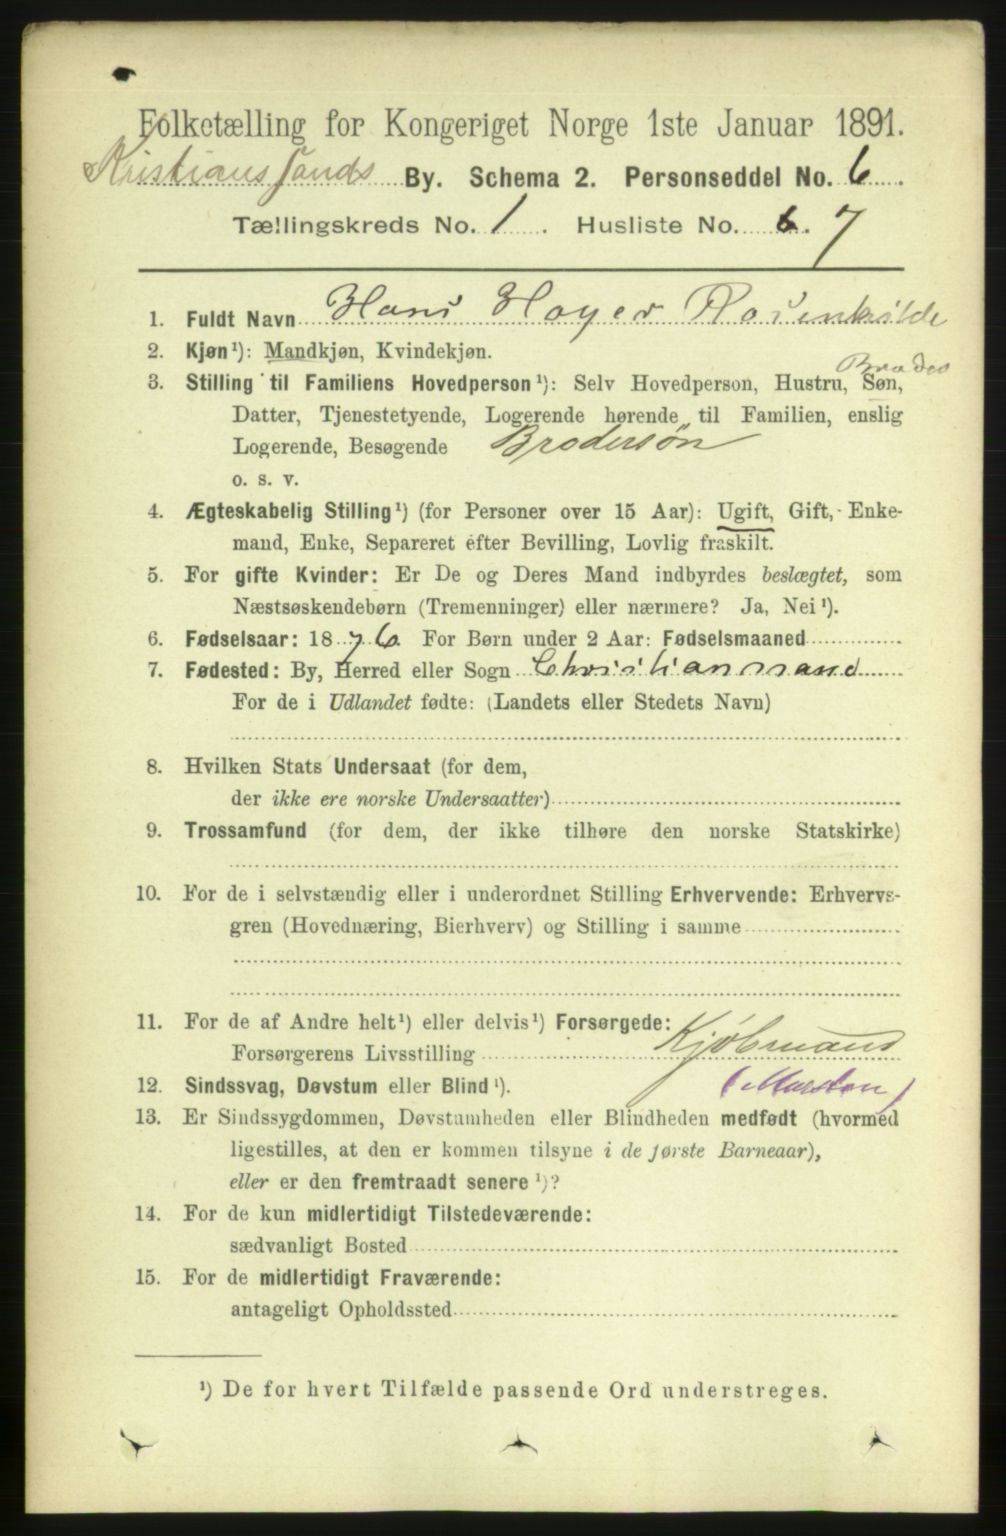 Folketælling for Kongeriget Norge 1ste Januar 1891.
Kristianssands By. Schema 2. Personseddel No. 6.
Tællingskreds No. 1. Husliste No. 6. 7
1. Fuldt Navn Hans Hoyer Rosenkilde
2. Kjøn¹): Mandkjøn, Kvindekjøn.
Broder
3. Stilling til Familiens Hovedperson¹): Selv Hovedperson, Hustru, Søn,
Datter, Tjenestetyende, Logerende hørende til Familien, enslig
Logerende, Besøgende Brodersøn
o. s. v.
4. Ægteskabelig Stilling¹) (for Personer over 15 Aar): Ugift, Gift, Enke-
mand, Enke, Separeret efter Bevilling, Lovlig fraskilt.
5. For gifte Kvinder: Er De og Deres Mand indbyrdes beslægtet, som
Næstsøskendebørn (Tremenninger) eller nærmere? Ja, Nei¹).
6. Fødselsaar: 1876 For Børn under 2 Aar: Fødselsmaaned
7. Fødested: By, Herred eller Sogn Christianssand
For de i Udlandet fødte: (Landets eller Stedets Navn)
8. Hvilken Stats Undersaat (for dem,
der ikke ere norske Undersaatter)
9. Trossamfund (for dem, der ikke tilhøre den norske Statskirke)
10. For de i selvstændig eller i underordnet Stilling Erhvervende: Erhvervs-
gren (Hovednæring, Bierhverv) og Stilling i samme
11. For de af Andre helt¹) eller delvis¹) Forsørgede:
Forsørgerens Livsstilling Kjøbmand
12. Sindssvag, Døvstum eller Blind¹).
13. Er Sindssygdommen, Døvstumheden eller Blindheden medfødt (hvormed
ligestilles, at den er kommen tilsyne i de første Barneaar),
eller er den fremtraadt senere¹)?
14. For de kun midlertidigt Tilstedeværende:
sædvanligt Bosted
15. For de midlertidigt Fraværende:
antageligt Opholdssted
¹) De for hvert Tilfælde passende Ord understreges.